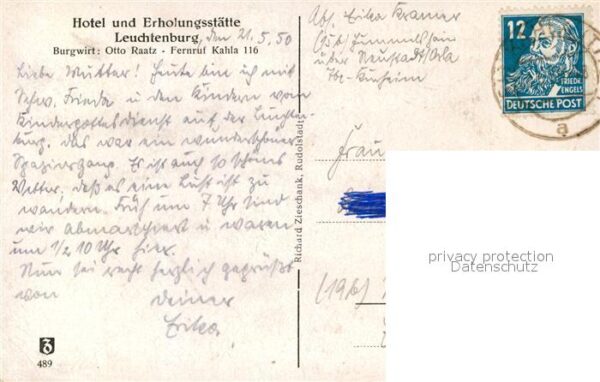 Hotel und Erholungsstätte
Leuchtenburg, den 21.5.50
Burgwirt: Otto Raatz - Fernruf Kahla 116
Liebe Mutter! Heute bin ich mit
Schw. Frieda u den Kindern vom
Kindergottesdienst auf der Leuchten-
burg. Das war ein wunderschöner
Spaziergang. Es ist auch so schönes
Wetter, daß es eine Lust ist zu
wandern. Früh um 7 Uhr sind
wir abmarschiert u waren
um 1/2 10 Uhr hier.
Nun sei recht herzlich gegrüßt
von Deiner
Erika.
489
Richard Zieschank, Rudolstadt
Abs. Erika Kramer
über Neustadt/Orla
12
FRIEDR. ENGELS
DEUTSCHE POST
a
Frau
(19b)
privacy protection
Datenschutz